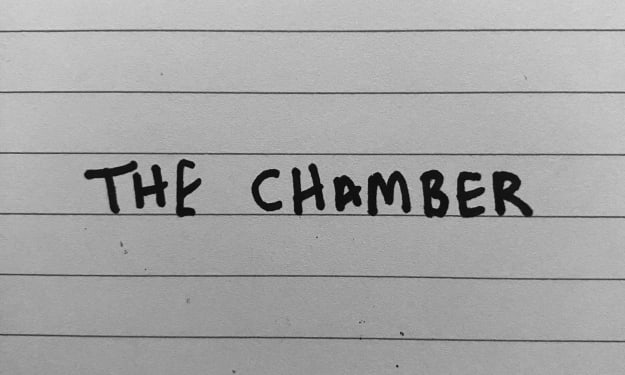 THE CHAMBER